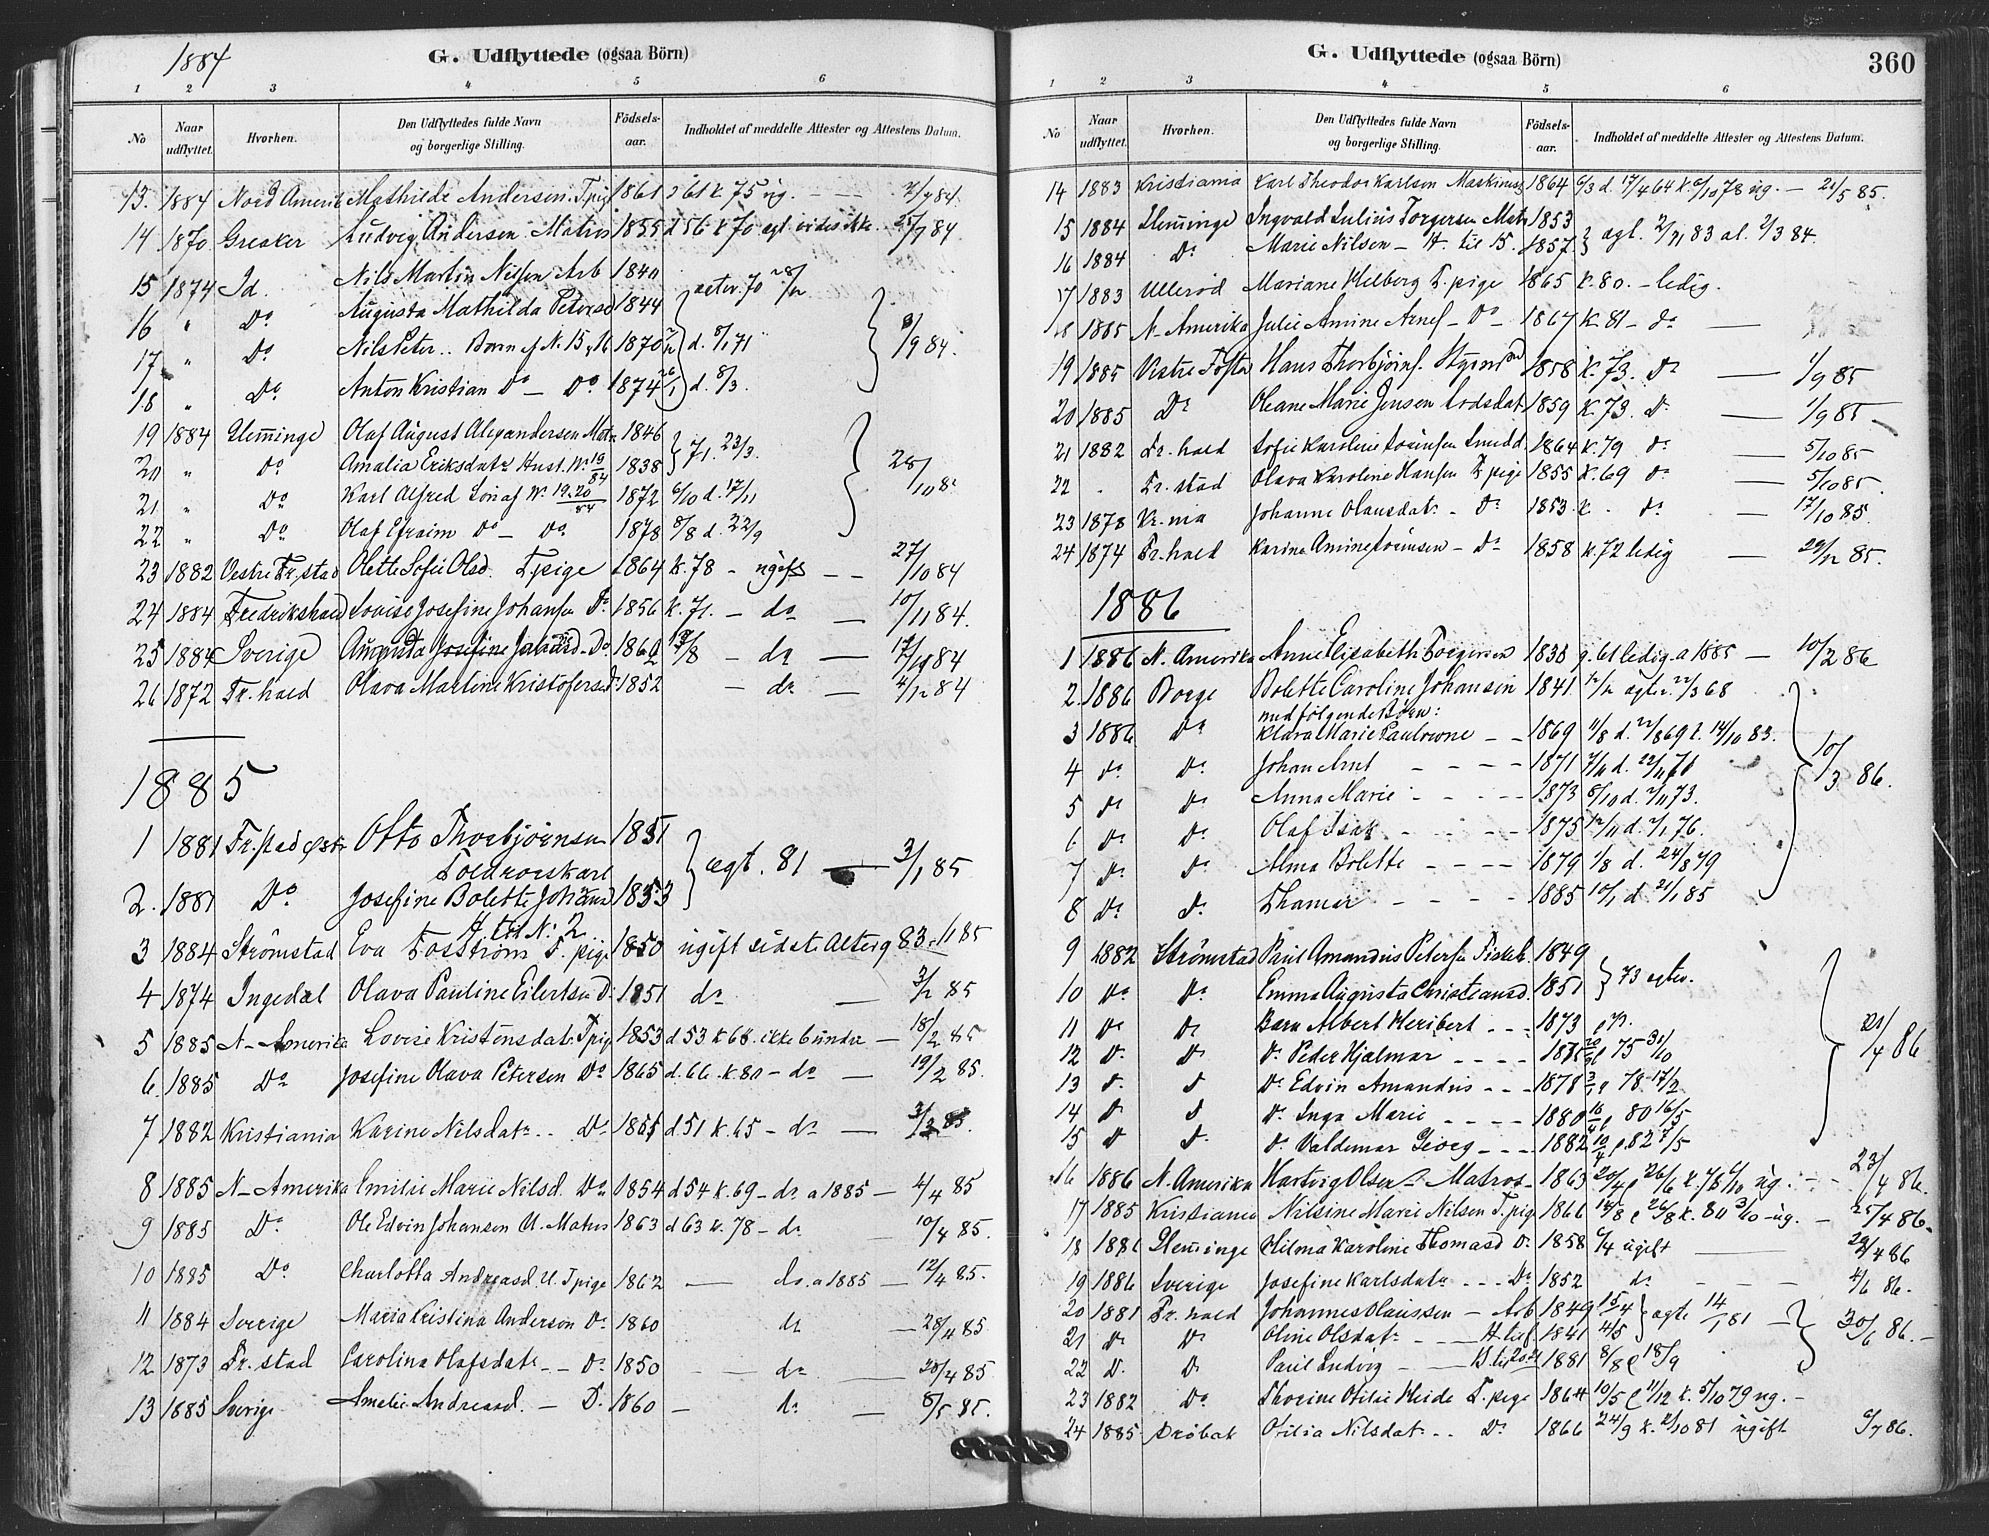 1884
G. Udflyttede (ogsaa Börn)
1 2 3 4 5 6
No Naar udflyttet. Hvorhen. Den Udflyttedes fulde Navn og borgerlige Stilling. Födsels-aar. Indholdet af meddelte Attester og Attestens Datum.
13. 1884 Nord Amerik Mathilde Andersen. T. pig 1861 d 61 k 75 ug. — 2/7 84.
14 1870 Greaker Ludvig Andersen Matros 1855 d 56 k 70 agt vides ikke. 25/7 84
15 1874 Id. Nils Martin Nilsen Arb 1840
16 " Do Augusta Mathilda Peters 1844
17 " Do Nils Peter .. Barn af N. 15, 16 1870 d. 8/1 71 9 84.
18 " Do Anton Kristian Do — Do 1874 d. 8/3.
19 1884 Glemminge Olaf August Alexandersen Mat 1846 71. 23/3.
20 " Do Amalia Eriksdatr Hust. No 19/84 1838 28/10 8
21 " Do Karl Alfred Søn af No 19.20/84 1872 6/10 d. 17/11
22 " Do Olaf Efraim Do — Do 1878 8/8 d. 22/9
23 1882 Vestre Fr. stad Olette Sofie Olsd. T. pige 1864 k. 78 — ugift — — 27/10 84
24 1884 Fredrikshald Lovise Josefine Johansen Do 1856 k. 71. — do — 10/11 84.
25 1884 Sverige Augusta Josefine Do 1862 — do — 84
26 1872 Fr. hald Olava Martine Kristofersd 1852 — do — 84
1885
1 1881 Fr. stad øst. Otto Thorbjörnsen Toldroerskarl 1851
2. 1881 Do Josefine Bolette Johans 1853 ægt. 81 — 3/1 85
H. til N: 2
3 1884 Strømstad Eva Fosström T. pige 1850 ugift sidste Alterg 83. 85
4 1874 Ingedal Olava Pauline Eilertsen D. 1851 do — 3/2 85
5 1885 N- Amerika Lovise Kristensdatr T. pig 1853 d 53 k 68. ikke bundne — 18/2 85
6. 1885 Do Josefine Olava Petersen Do 1865 d. 66. k 80 — do — 19/2 85.
7 1882 Kristiania Karine Nilsdatr .. Do 1851 d 51 k. 65 — do — 85.
8 1885 N- Amerika Emilie Marie Nilsd. Do 1854 d 54 k. 69 — do. a 1885 — 4/4 85
9 1885 Do Ole Edvin Johansen U. Matros 1863 d 63 k. 78 — do — 10/4 85.
10 1885 Do Charlotta Andreasd. U. T pige 1862 — do. a 1885 — 12/4 85.
11 1884 Sverige Maria Kristina Anderson Do 1860 do — 28/4 85
12 1873 Fr. stad Carolina Olafsdatr — Do 1850 — do — 28/4 85
13 1885 Sverige Amalie Andreasd. — D. 1860 — do — 8/5 85.
360
G. Udflyttede (ogsaa Börn)
1 2 3 4 5 6
No Naar udflyttet. Hvorhen. Den Udflyttedes fulde Navn og borgerlige Stilling. Födsels-aar. Indholdet af meddelte Attester og Attestens Datum.
14 1883 Kristiania Karl Theodor Karlson Maskinist 1864 6/3 d. 17/4 64 k. 6/10 78 ug. — 21/5 85.
15 1884 Glemminge Ingvald Julius Torgersen Matr 1853
16 1884 Do Marie Nilsen — H. til 15. 1857 agt. 83 al. 2/3 84.
17 1883 Ullerød Mariane Melberg T. pige 1865 k. 80. — ledig.
18 1885 N- Amerika Julie Amine Arnes — Do — 1867 k 81 — do —
19 1885 Vestre Toften Hans Thorbjörns. Styrmd 1858 k. 73. Do — 1/9 85
20 1885 Do Oleane Marie Jensen Lodsdat. 1859 k. 73. Do — 1/9 85 —
21 1882 Fr. hald Sofie Karoline Smedd. 1864 k. 79 do — 5/10 85
22 . Fr. stad Olava Karoline Hansen T. pige 1855 k. 69 do — 5/10 85.
23 1878 Kr. nia Johanne Olausdatr — Do 1853 k. . do — 17/10 85.
24 1874 Fr. hald Karina Amine — Do 1858 k. 72 ledig — 29/12 85.
1886
1 1886 N. Amerika Anne Elisabeth Torgersen 1838 g. 61 ledig. a 1885 — 10/2 86
2. 1886 Borge Bolette Caroline Johansen 1841 12/12 agtv. 22/3 68
medfölgende Börn:
3 1886 Do Klara Marie Paulowne — — 1869 11/8 d. 22/8 69 k. 14/10 83.
4 do Do Johan Arnt — — — — 1871 7/11 d. 22/11 71 10/3 86.
5 do Do Anna Marie — — — 1873 8/10 d. 2/11 73.
6 Do Do Olaf Isak — — — 1875 12/11 d. 2/1 76.
7 Do Do Alma Bolette — — — 1879 1/8 d. 24/8 79
8 Do Do Thamar — — — 1885 10/1 d 21/1 85
9 1882 Strömstad Paul Amandus Petersen Fiskeh. 1849
10 Do Do Emma Augusta Christiansd. 1851 73 agtev.
11 Do Do Barn Albert Heribert — — — 1873
12 D. D Do Peder Hjalmar — — — — 1875 75 31/10 21/4 86
13 D. D Do Edvin Amandus — — — 1878 78 17/2
14 D D Do Inga Marie — — — — 1880 80 16/5
15 D D. Do Valdemar Georg — — — 1882 82 7/5
16 1886 N. Amerika Hartvig Olsen — Matros — 1863 20/4 26/6 k. 78 6/10 ug. — 23/4 86.
17 1885 Kristiania Nilsine Marie Nilsen T. pig 1866 14/8 26/8 k. 80 3/10 ug. — 25/4 86.
18 1886 Glemminge Hilma Karoline Thomasd Do 1858 6/4 ugift — 29/4 86
19 1886 Sverige Josefine Karlsdatr — — — Do 1852 do — — — 4/6 86.
20 1881 Fr. hald Johannes Olaussen — Arb 1849 15/4 agte 14/1 81 —
21 Do Do Oline Olsdatr — H. til f. 1841 4/5 30/6 86. —
22 D. D Paul Ludvig — — B. til 20.21 1881 8/8 18/9
23 1882 Do Thorine Otilie Heide T. pige 1864 10/5 11/12 k. 5/10 79 ug. —
24 1885 Drøbak Otilia Nilsdatr .. Do 1866 24/9 k. 2/10 81 ugift 6/7 86.